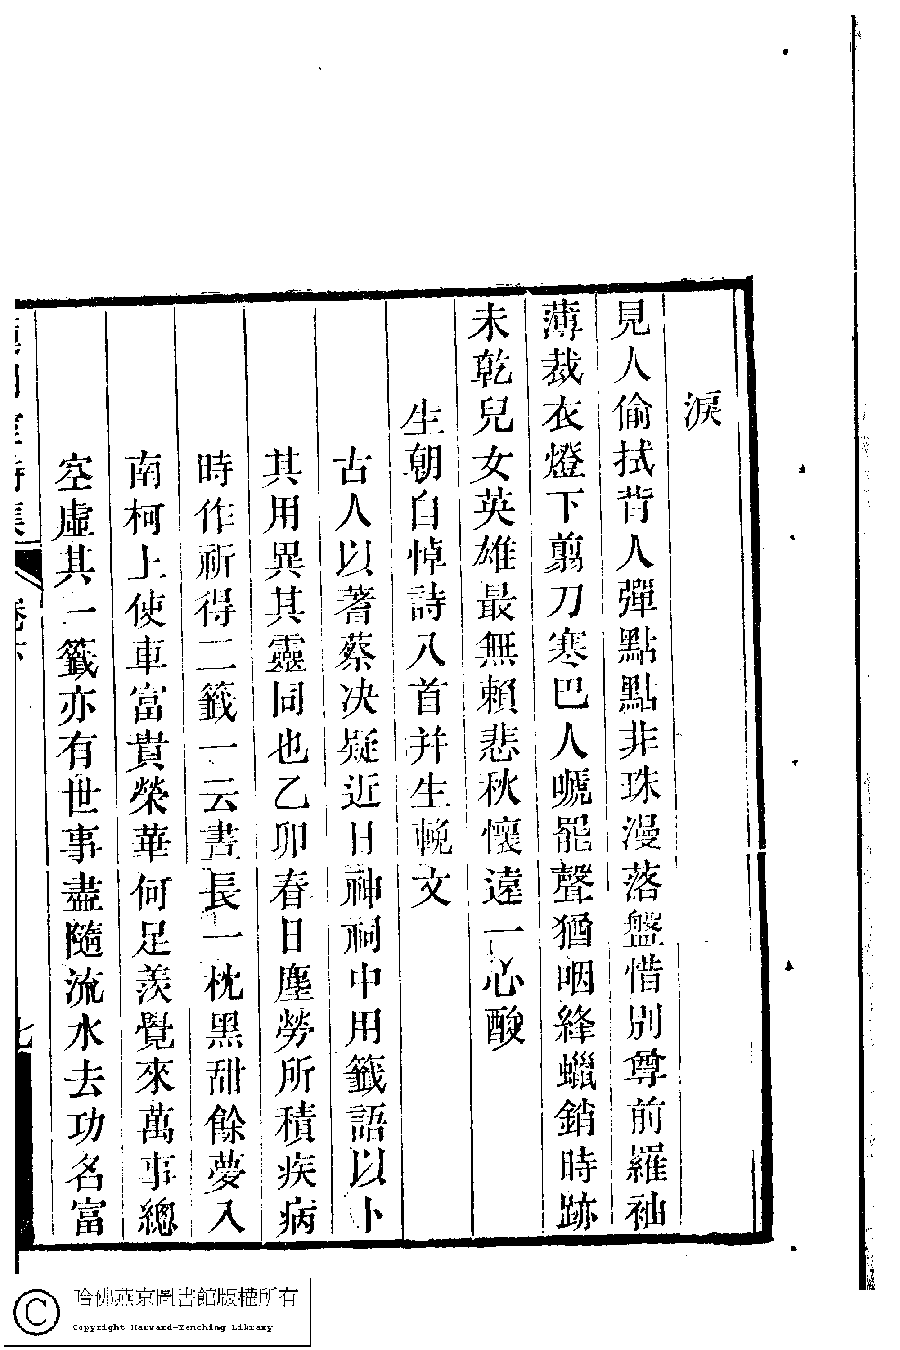 淚
見人偷拭背人彈點點非珠漫落盤惜別尊前羅袖
薄裁衣燈下翦刀寒巴人唬罷聲猶咽絳蠟銷時跡
未乾兒女英雄最無賴悲秋懷遠一心酸
生朝自悼詩八首并生輓文
古人以蓍蔡決疑近日神祠中用籤語以卜
其用異其靈同也乙卯春日塵勞所積疾病
時作祈得二籤一云晝長一枕黑甜餘夢入
南柯上使車富貴榮華何足羨覺來萬事總
空虛其一籤亦有世事盡隨流水去功名富
詩集
卷六
七
哈佛燕京圖書館版權所有
Copyright Harvard-Yenching Library